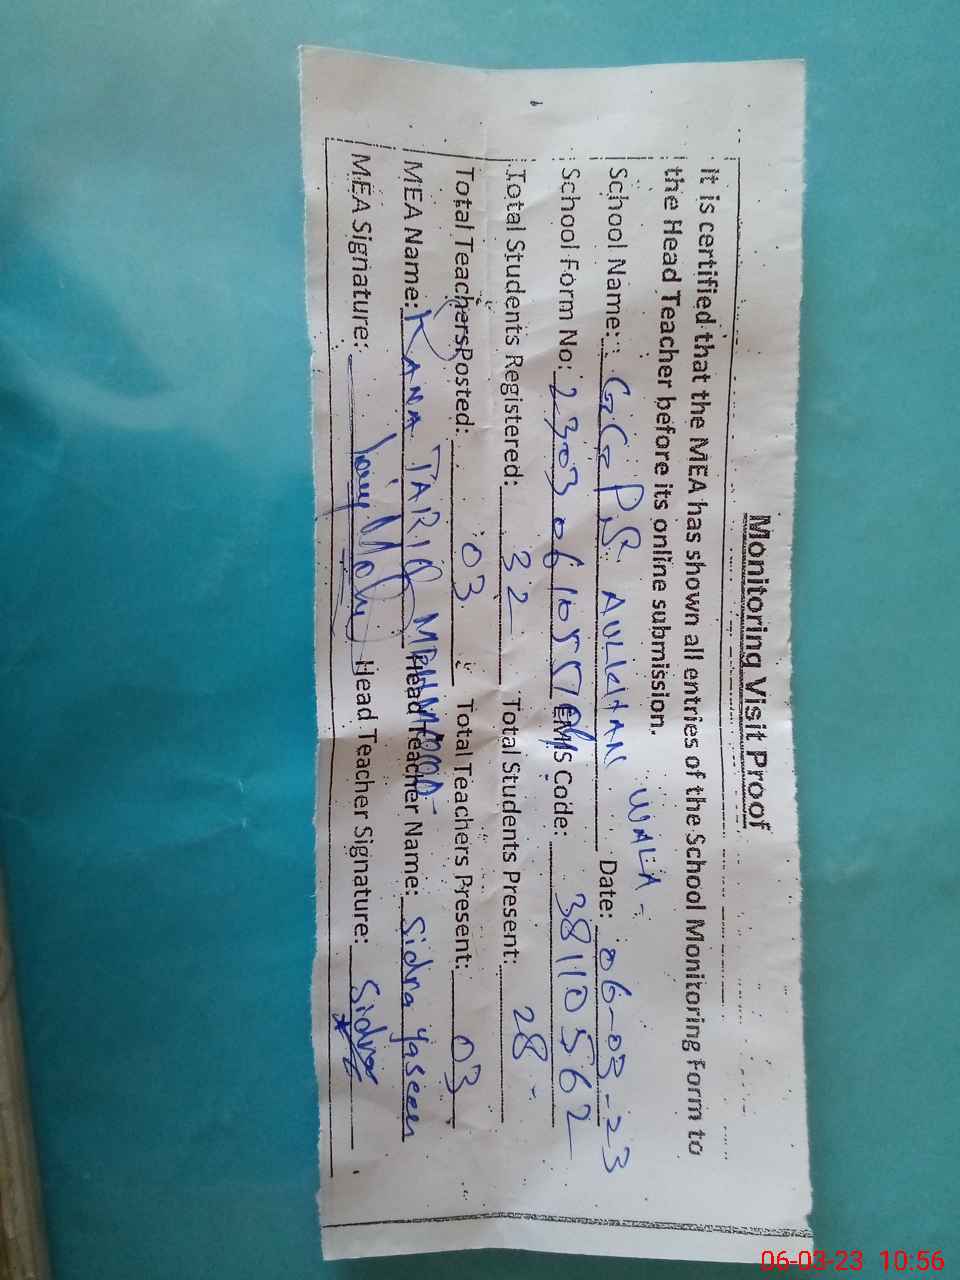 Monitoring Visit Proof
It is certified that the MEA has shown all entries of the School Monitoring Form to
the Head Teacher before its online submission.
School Name: GGPS AULKHAN WALA - Date: 06-03-23
School Form No: EMIS Code: 38110562
Total Students Registered: 32 Total Students Present: 28 -
Total Teachers Posted: 03 Total Teachers Present: 03
MEA Name: RANA TARIQ MEHMOOD Head Teacher Name: Sidra Yaseen
MEA Signature: Head Teacher Signature: Sidra
06-03-23 10:56